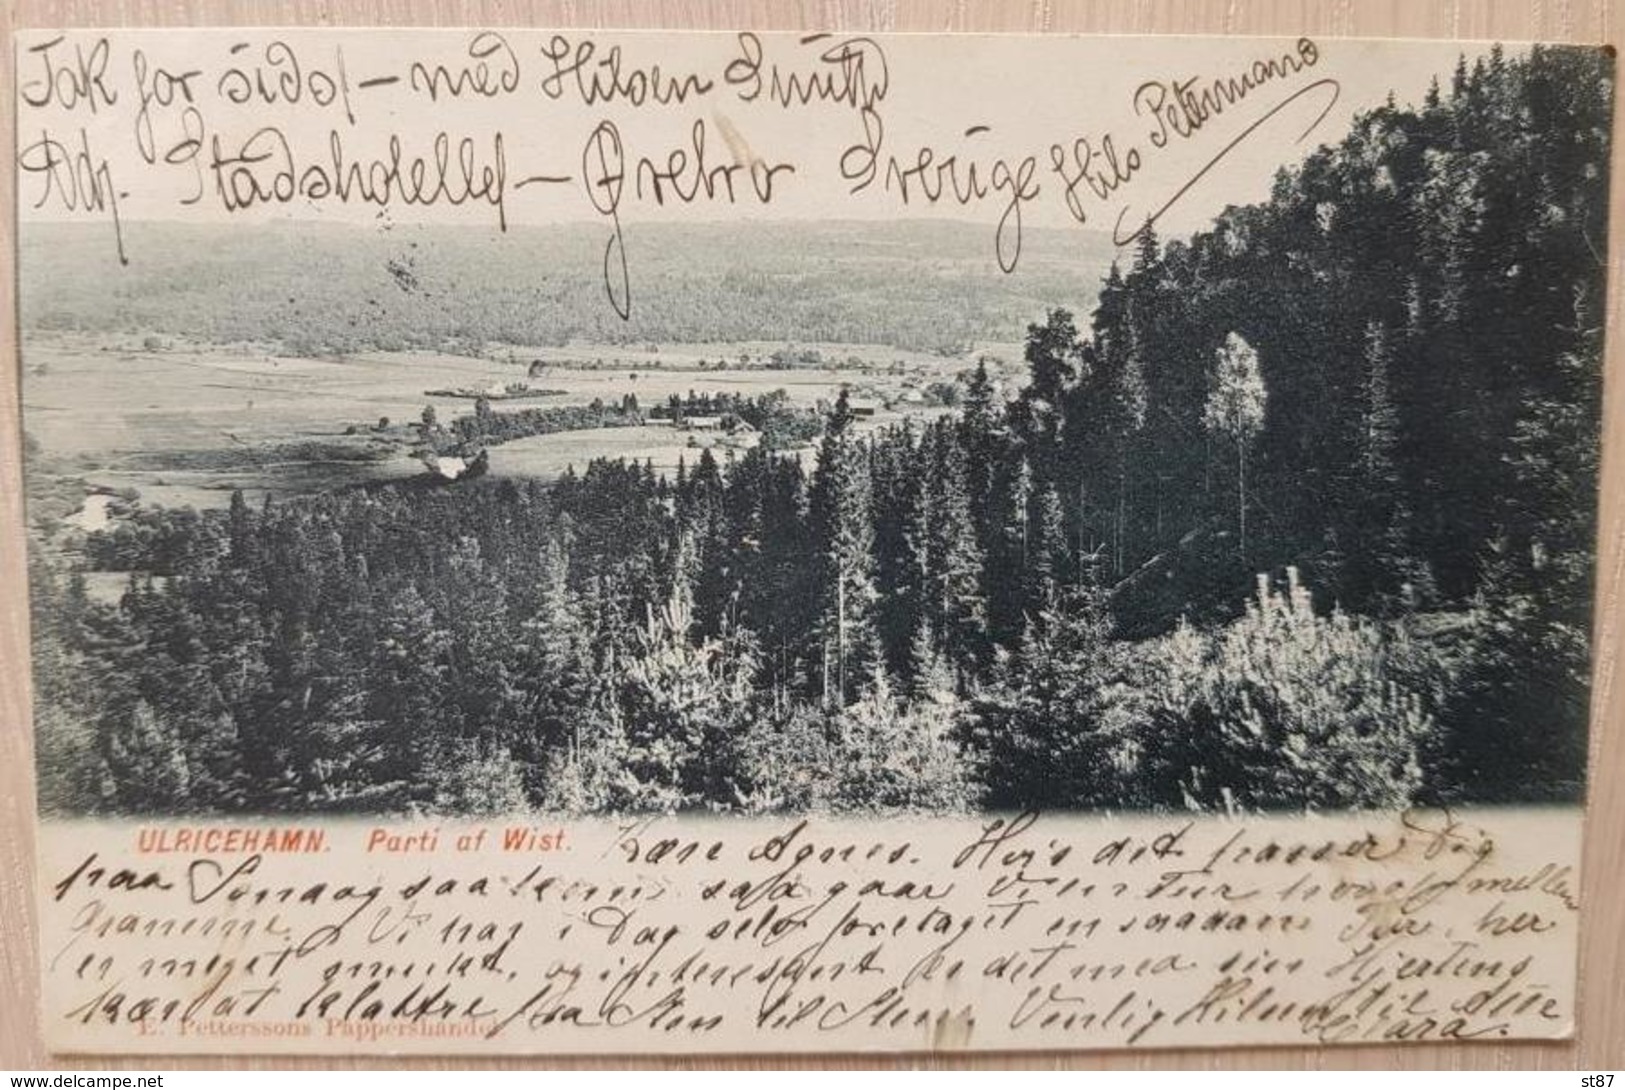 Tak for sidst – med Hilsen Smith
Adr. Stadshotellet – Ørebro Sverige
Hils Petermann
ULRICEHAMN. Parti af Wist.
Kære Agnes. Hvis det passer Dig
paa Søndag saa kom, saa gaar vi en Tur mellem
Granerne. Vi har i Dag selv foretaget en saadan Tur, her
er meget smukt, og interesant er det med sin Hjertens
kær at klattre fra Sten til Sten. Venlig Hilsen til
Clara.
E. Petterssons Pappershandel
delcampe.net
st87